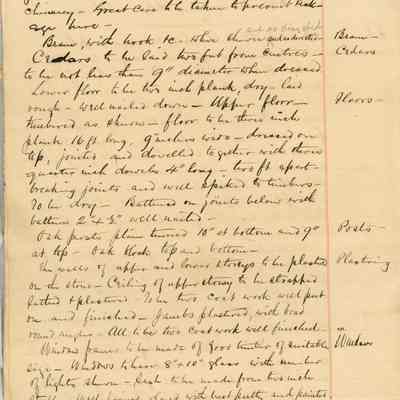 chimney - Great care to be taken to prevent leak-
age here -
Beams, with hook &c. where shown
Cedars to be laid two feet from centres -
to be not less than 9" diameter when dressed
Lower floor to be two inch plank, dry - laid
rough - well nailed down - Upper floor -
timbered as shown - floor to be three inch
plank 16 ft long, 9 inches wide - dressed on
top, jointed and dovelled together with three
quarter inch dowels 4" long - two ft apart -
breaking joints and well spiked to timbers -
To be dry - Battened on joints below with
battens 2 x ½" well nailed -
Oak posts, plain turned 10" at bottom and 9"
at top - Oak block top and bottom -
The walls of upper and lower storeys to be plastered
on the stone - Ceiling of upper storey to be strapped
latted & plastered. To be two coat work well put
on and finished - Jambs plastered, with bead
round angles - All to be two coat work well finished -
Window frames to be made of good timber of suitable
size - Windows to have 8" x 10" glass with number
of lights shown - Sash to be made from two inch
well glazed with best putty and painted
Beams -
Cedars
Floors -
Posts -
Plastering
Windows